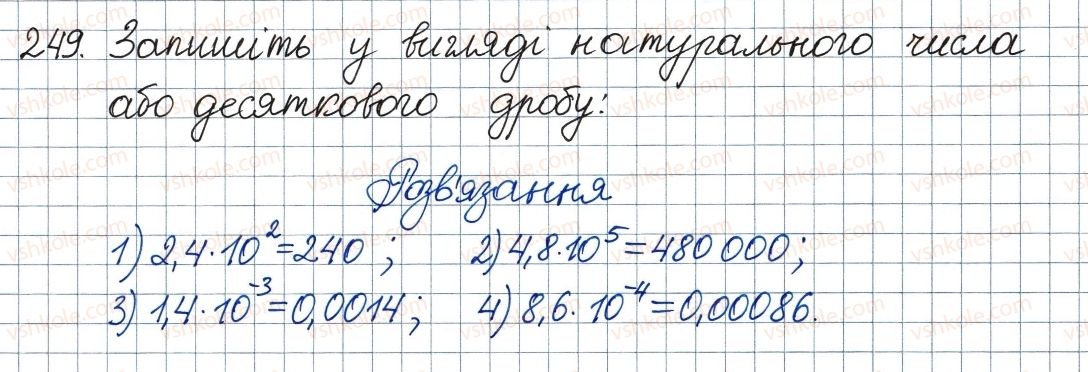 249. Запишіть у вигляді натурального числа
або десяткового дробу:
Розв'язання
1) 2,4·10²=240; 2) 4,8·10⁵=480 000;
3) 1,4·10⁻³=0,0014; 4) 8,6·10⁻⁴=0,00086.